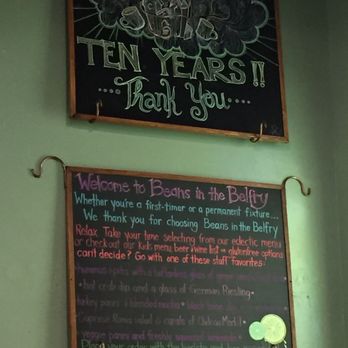 TEN YEARS!!
Thank You
Welcome to Beans in the Belfry
Whether you're a first-timer or a permanent fixture...
We thank you for choosing Beans in the Belfry
Relax. Take your time selecting from our eclectic menu
or checkout our Kids menu, beer/wine list + glutenfree options
can't decide? Go with one of these staff favorites:
hummus + pita with a glass of
hot crab dip and a glass of German Riesling
turkey panini + blended mocha
caprese panini salad a carafe of
veggie panini and freshly squeezed lemonade